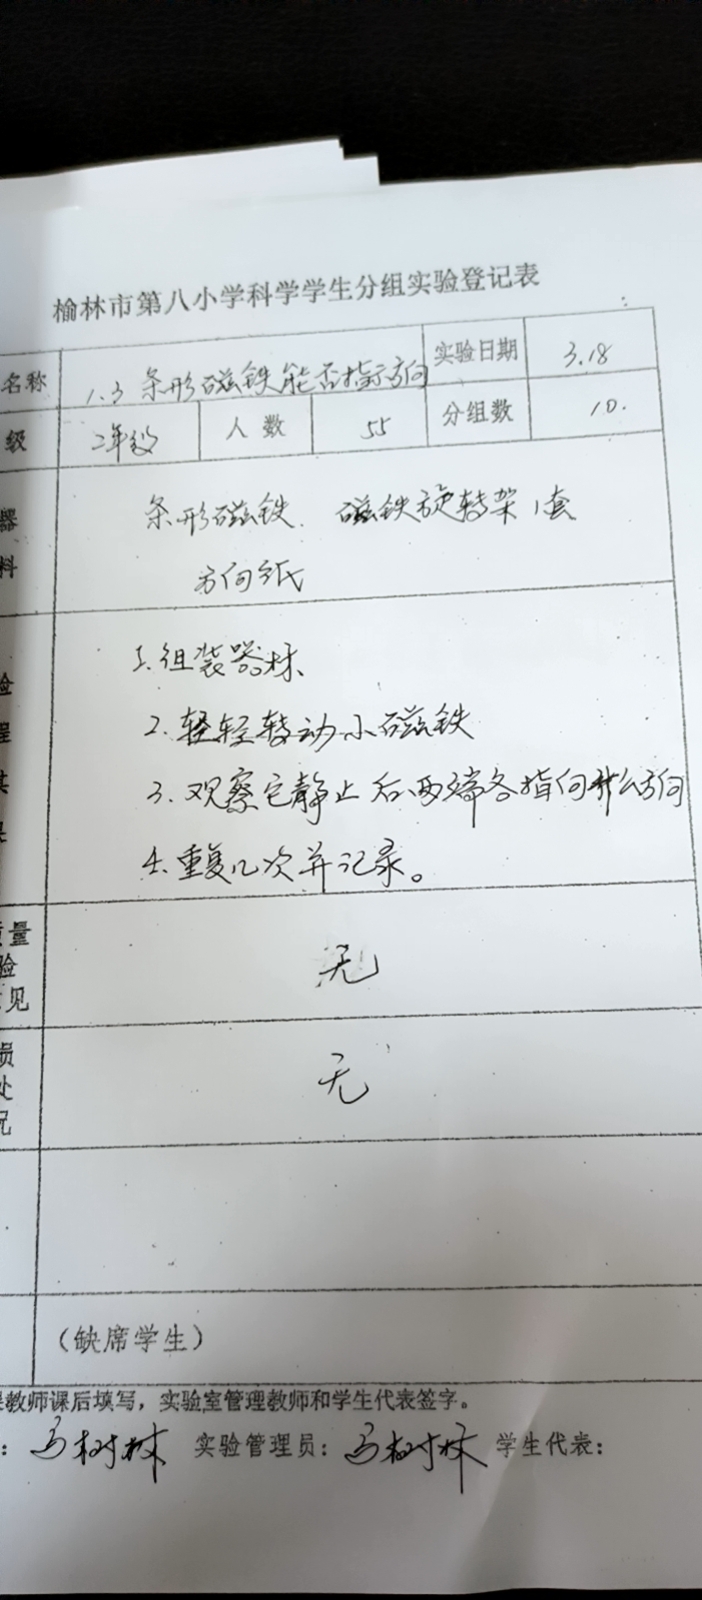 榆林市第八小学科学学生分组实验登记表
名称 1.3 条形磁铁能否指示方向 实验日期 3.18
级 2年级 人数 55 分组数 10.
器 条形磁铁. 磁铁旋转架1套
料 方向纸
1.组装器材
验 2.轻轻转动小磁铁
程 3.观察它静止后两端各指向什么方向
其
果 4.重复几次并记录。
质量
验 无
意见
损
处 无
况
(缺席学生)
课教师课后填写，实验室管理教师和学生代表签字。
：马树林 实验管理员：马树林 学生代表：